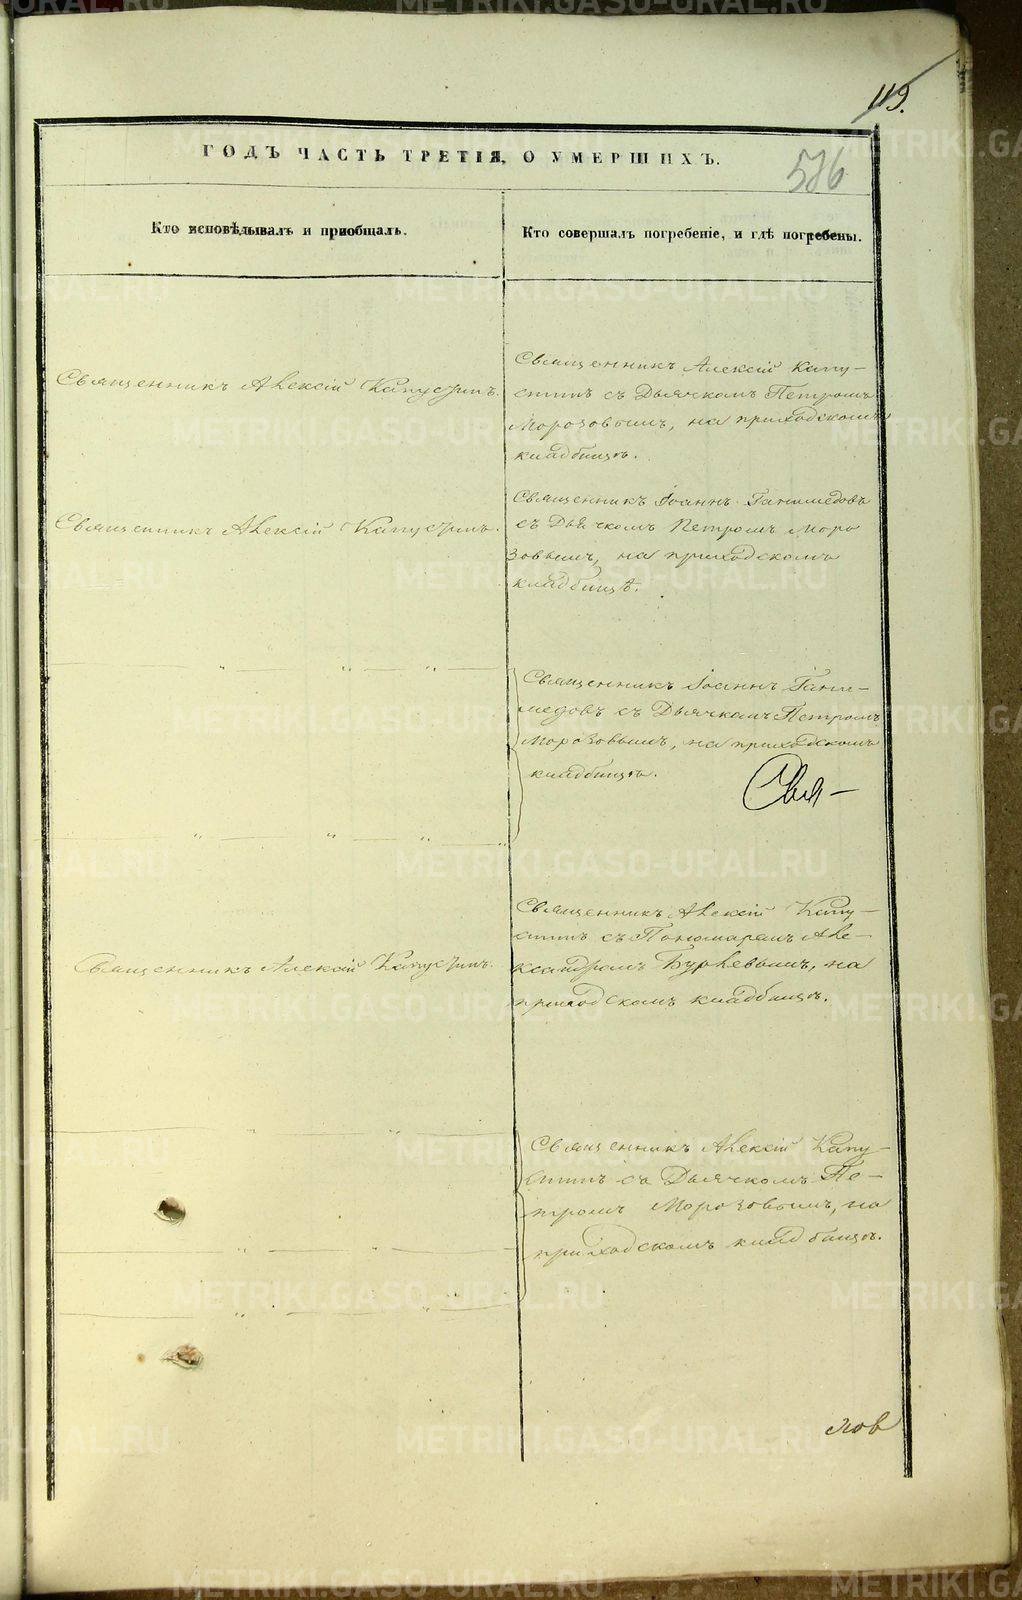 119.
ГОДЪ ЧАСТЬ ТРЕТІЯ, О УМЕРШИХЪ.
576
Кто исповѣдывалъ и пріобщалъ.
Кто совершалъ погребеніе, и гдѣ погребены.
Священникъ Алексій Капустинъ.
Священникъ Алексій Капу-
стинъ съ Дьячкомъ Петромъ
Морозовымъ, на приходскомъ
кладбищѣ.
Священникъ Алексій Капустинъ.
Священникъ Іоаннъ Ганимедовъ
съ Дьячкомъ Петромъ Моро
зовымъ, на приходскомъ
кладбищѣ.
— " — " — " —
Священникъ Іоаннъ Гани-
медовъ съ Дьячкомъ Петромъ
Морозовымъ, на приходскомъ
кладбищѣ.
Свя-
— " — " — " —
Священникъ Алексій Капустинъ.
Священникъ Алексій Капу-
стинъ съ Пономаремъ Але-
ксандромъ Бурлевымъ, на
приходскомъ кладбищѣ.
Священникъ Алексій Капу-
стинъ съ Дьячкомъ Пе-
тромъ Морозовымъ, на
приходскомъ кладбищѣ.
— " — " — " —
— " — " — " —
— " — " — " —
лов
METRIKI.GASO-URAL.RU